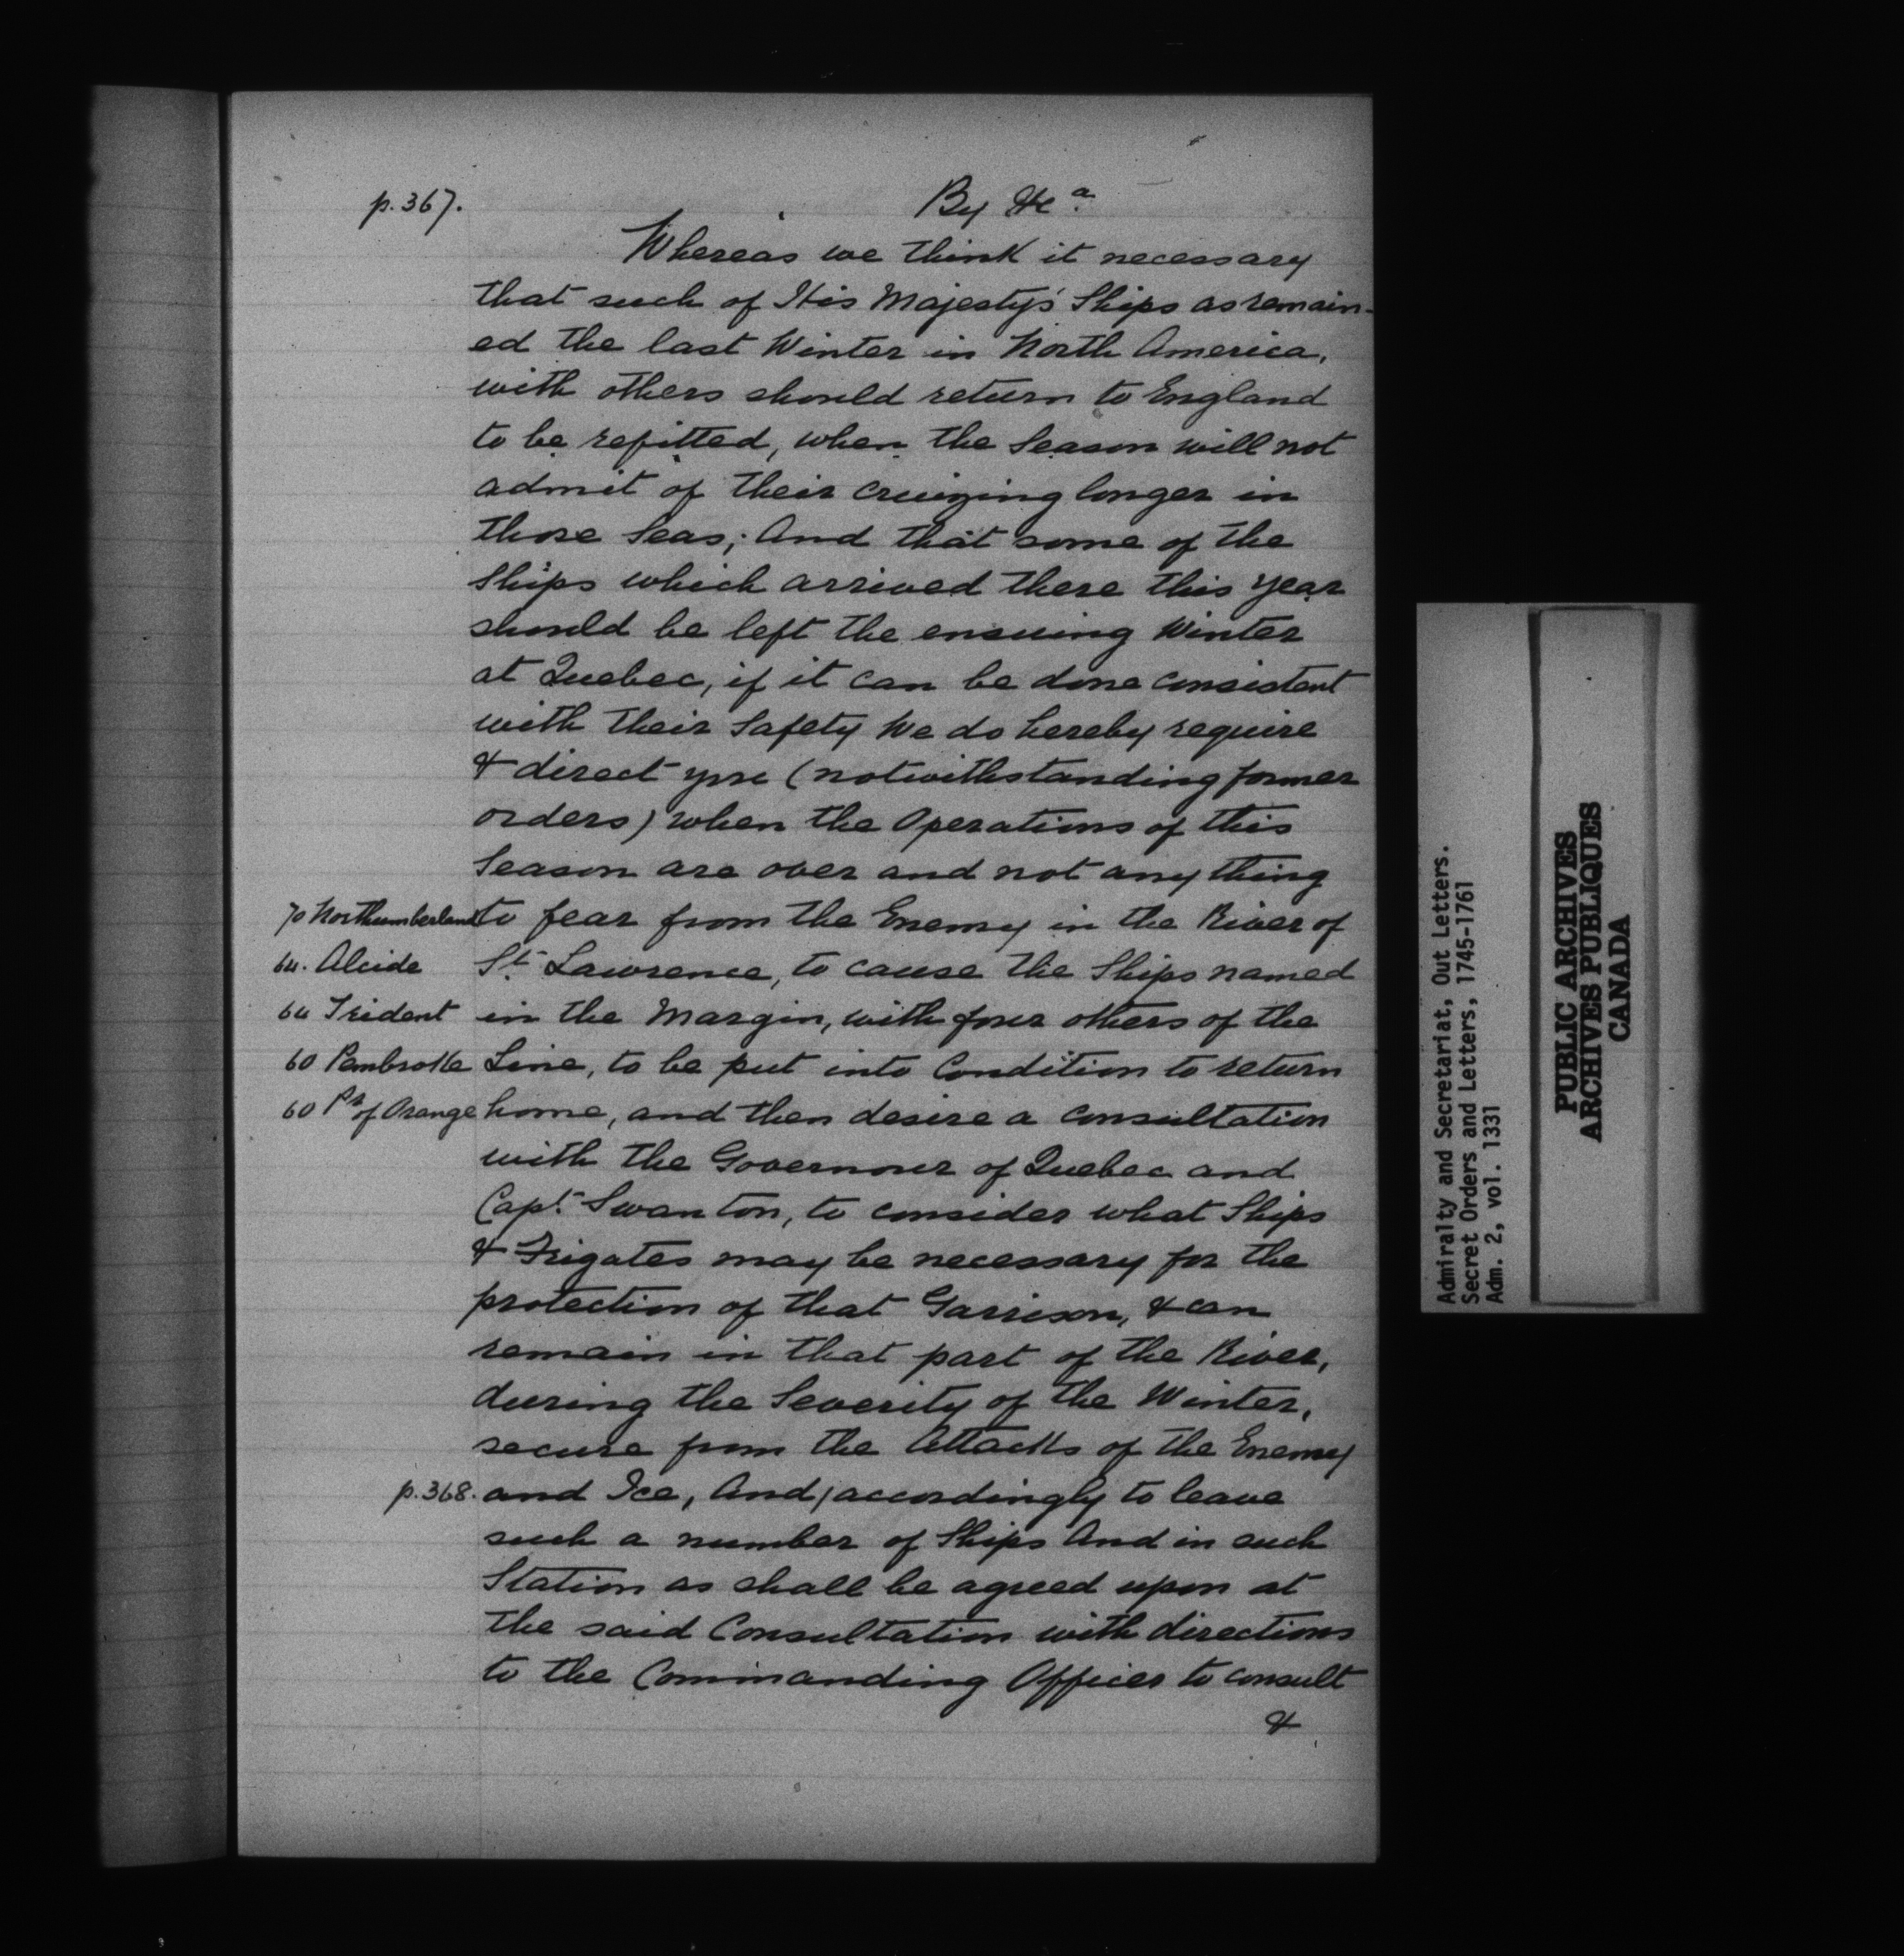 p. 367.
By &c a.
Whereas we think it necessary
that such of His Majesty's Ships as remain-
ed the last Winter in North America,
with others should return to England
to be refitted, when the Season will not
admit of their cruizing longer in
those Seas; And that some of the
Ships which arrived there this year
should be left the ensuing Winter
at Quebec, if it can be done consistent
with their Safety We do hereby require
& direct you (notwithstanding former
orders) when the Operations of this
Season are over and not any thing
70 Northumberland to fear from the Enemy in the River of
64. Alcide St. Lawrence, to cause the Ships named
64 Trident in the Margin, with four others of the
60 Pembroke Line, to be put into Condition to return
60 Pr of Orange home, and then desire a consultation
with the Governour of Quebec and
Capt. Swanton, to consider what Ships
& Frigates may be necessary for the
protection of that Garrison, & can
remain in that part of the River,
during the Severity of the Winter,
secure from the Attacks of the Enemy
p. 368. and Ice, And, accordingly to leave
such a number of Ships And in such
Station as shall be agreed upon at
the said Consultation with directions
to the Commanding Officer to consult
&
Admiralty and Secretariat, Out Letters.
Secret Orders and Letters, 1745-1761
Adm. 2, vol. 1331
PUBLIC ARCHIVES
ARCHIVES PUBLIQUES
CANADA